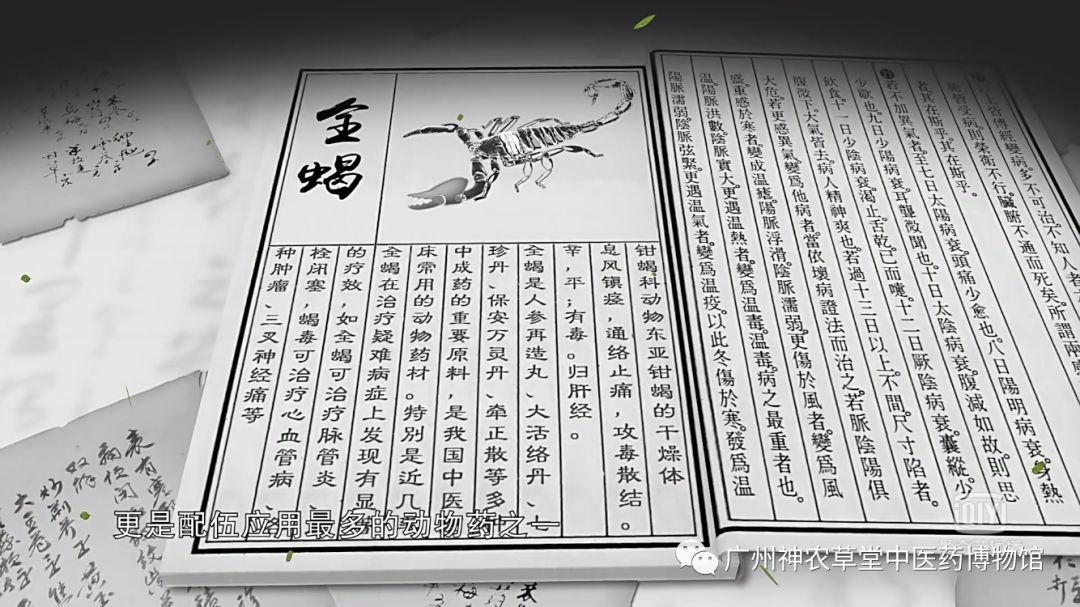 上皆傳經變病多不可治。不知人者
皆受病。則榮衛不行。臟腑不通而死矣。所謂兩
者其在斯乎。其在斯乎。
若不加異氣者。至七日太陽病衰。頭痛少愈也。八日陽明病衰。身熱
少歇也。九日少陽病衰。耳聾微聞也。十日太陰病衰。腹減如故。則思
飲食。十一日少陰病衰。渴止。舌乾。已而嚏。十二日厥陰病衰。囊縱。少
腹微下。大氣皆去。病人精神爽也。若過十三日以上不間。尺寸陷者。
大危。若更感異氣。變爲他病者。當依壞病證法而治之。若脈陰陽俱
盛。重感於寒者。變成溫瘧。陽脈浮滑。陰脈濡弱。更傷於風者。變爲風
溫。陽脈洪數。陰脈實大。更遇溫熱者。變爲溫毒。溫毒。病之最重者也。
陽脈濡弱。陰脈弦緊。更遇溫氣者。變爲溫疫。以此冬傷於寒。發爲溫
全蝎
钳蝎科动物东亚钳蝎的干燥体
息风镇痉，通络止痛，攻毒散结。
辛，平；有毒。归肝经。
全蝎是人参再造丸、大活络丹、七
珍丹、保安万灵丹、牵正散等多
中成药的重要原料，是我国中医
床常用的动物药材。特别是近几
全蝎在治疗疑难病症上发现有显
的疗效，如全蝎可治疗脉管炎、
栓闭塞，蝎毒可治疗心血管病、
种肿瘤、三叉神经痛等
更是配伍应用最多的动物药之一
广州神农草堂中医药博物馆